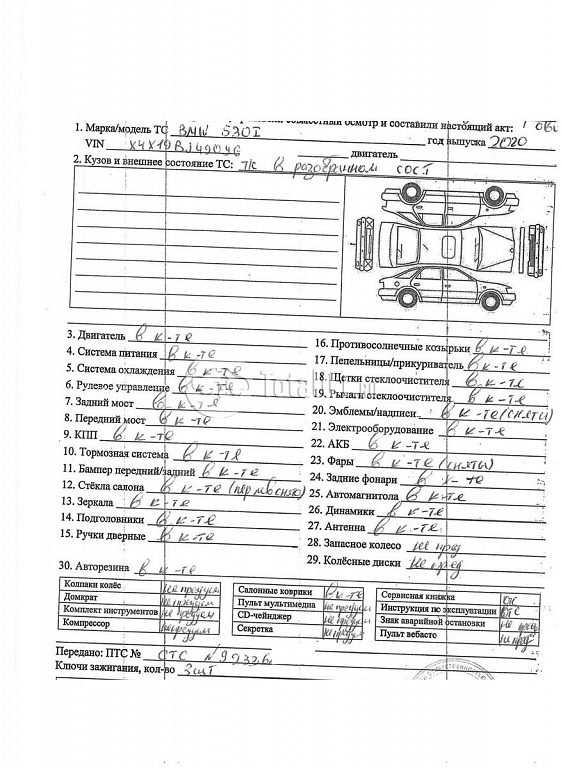 совместный осмотр и составили настоящий акт:
1. Марка/модель ТС BMW 530I
VIN год выпуска 2020
двигатель
2. Кузов и внешнее состояние ТС: т/с в разобранном сост
3. Двигатель в к-те
4. Система питания в к-те
5. Система охлаждения в к-те
6. Рулевое управление в к-те
7. Задний мост в к-те
8. Передний мост в к-те
9. КПП в к-те
10. Тормозная система в к-те
11. Бампер передний/задний в к-те
12. Стёкла салона в к-те
13. Зеркала в к-те
14. Подголовники в к-те
15. Ручки дверные в к-те
16. Противосолнечные козырьки в к-те
17. Пепельницы/прикуриватель в к-те
18. Щетки стеклоочистителя в к-те
19. Рычаги стеклоочистителя в к-те
20. Эмблемы/надписи в к-те (сняты)
21. Электрооборудование в к-те
22. АКБ в к-те
23. Фары в к-те (сняты)
24. Задние фонари в к-те
25. Автомагнитола в к-те
26. Динамики в к-те
27. Антенна в к-те
28. Запасное колесо не пред
29. Колёсные диски не пред
30. Авторезина в к-те
Колпаки колёс
Домкрат
Комплект инструментов
Компрессор
Салонные коврики в к-те
Пульт мультимедиа
CD-чейнджер
Секретка
Сервисная книжка
Инструкция по эксплуатации
Знак аварийной остановки
Пульт вебасто
Передано: ПТС № СТС
Ключи зажигания, кол-во